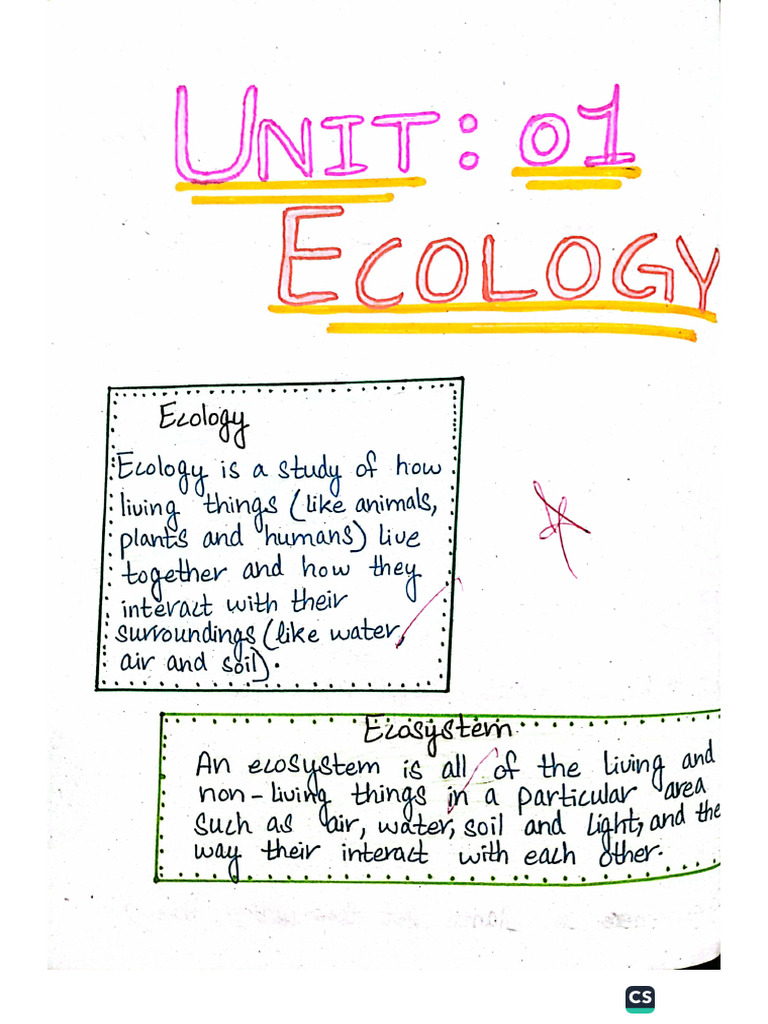 UNIT: 01
ECOLOGY
Ecology
Ecology is a study of how
living things (like animals,
plants and humans) live
together and how they
interact with their
surroundings (like water,
air and soil).
Ecosystem
An ecosystem is all of the living and
non-living things in a particular area
such as air, water, soil and light, and the
way their interact with each other.
CS